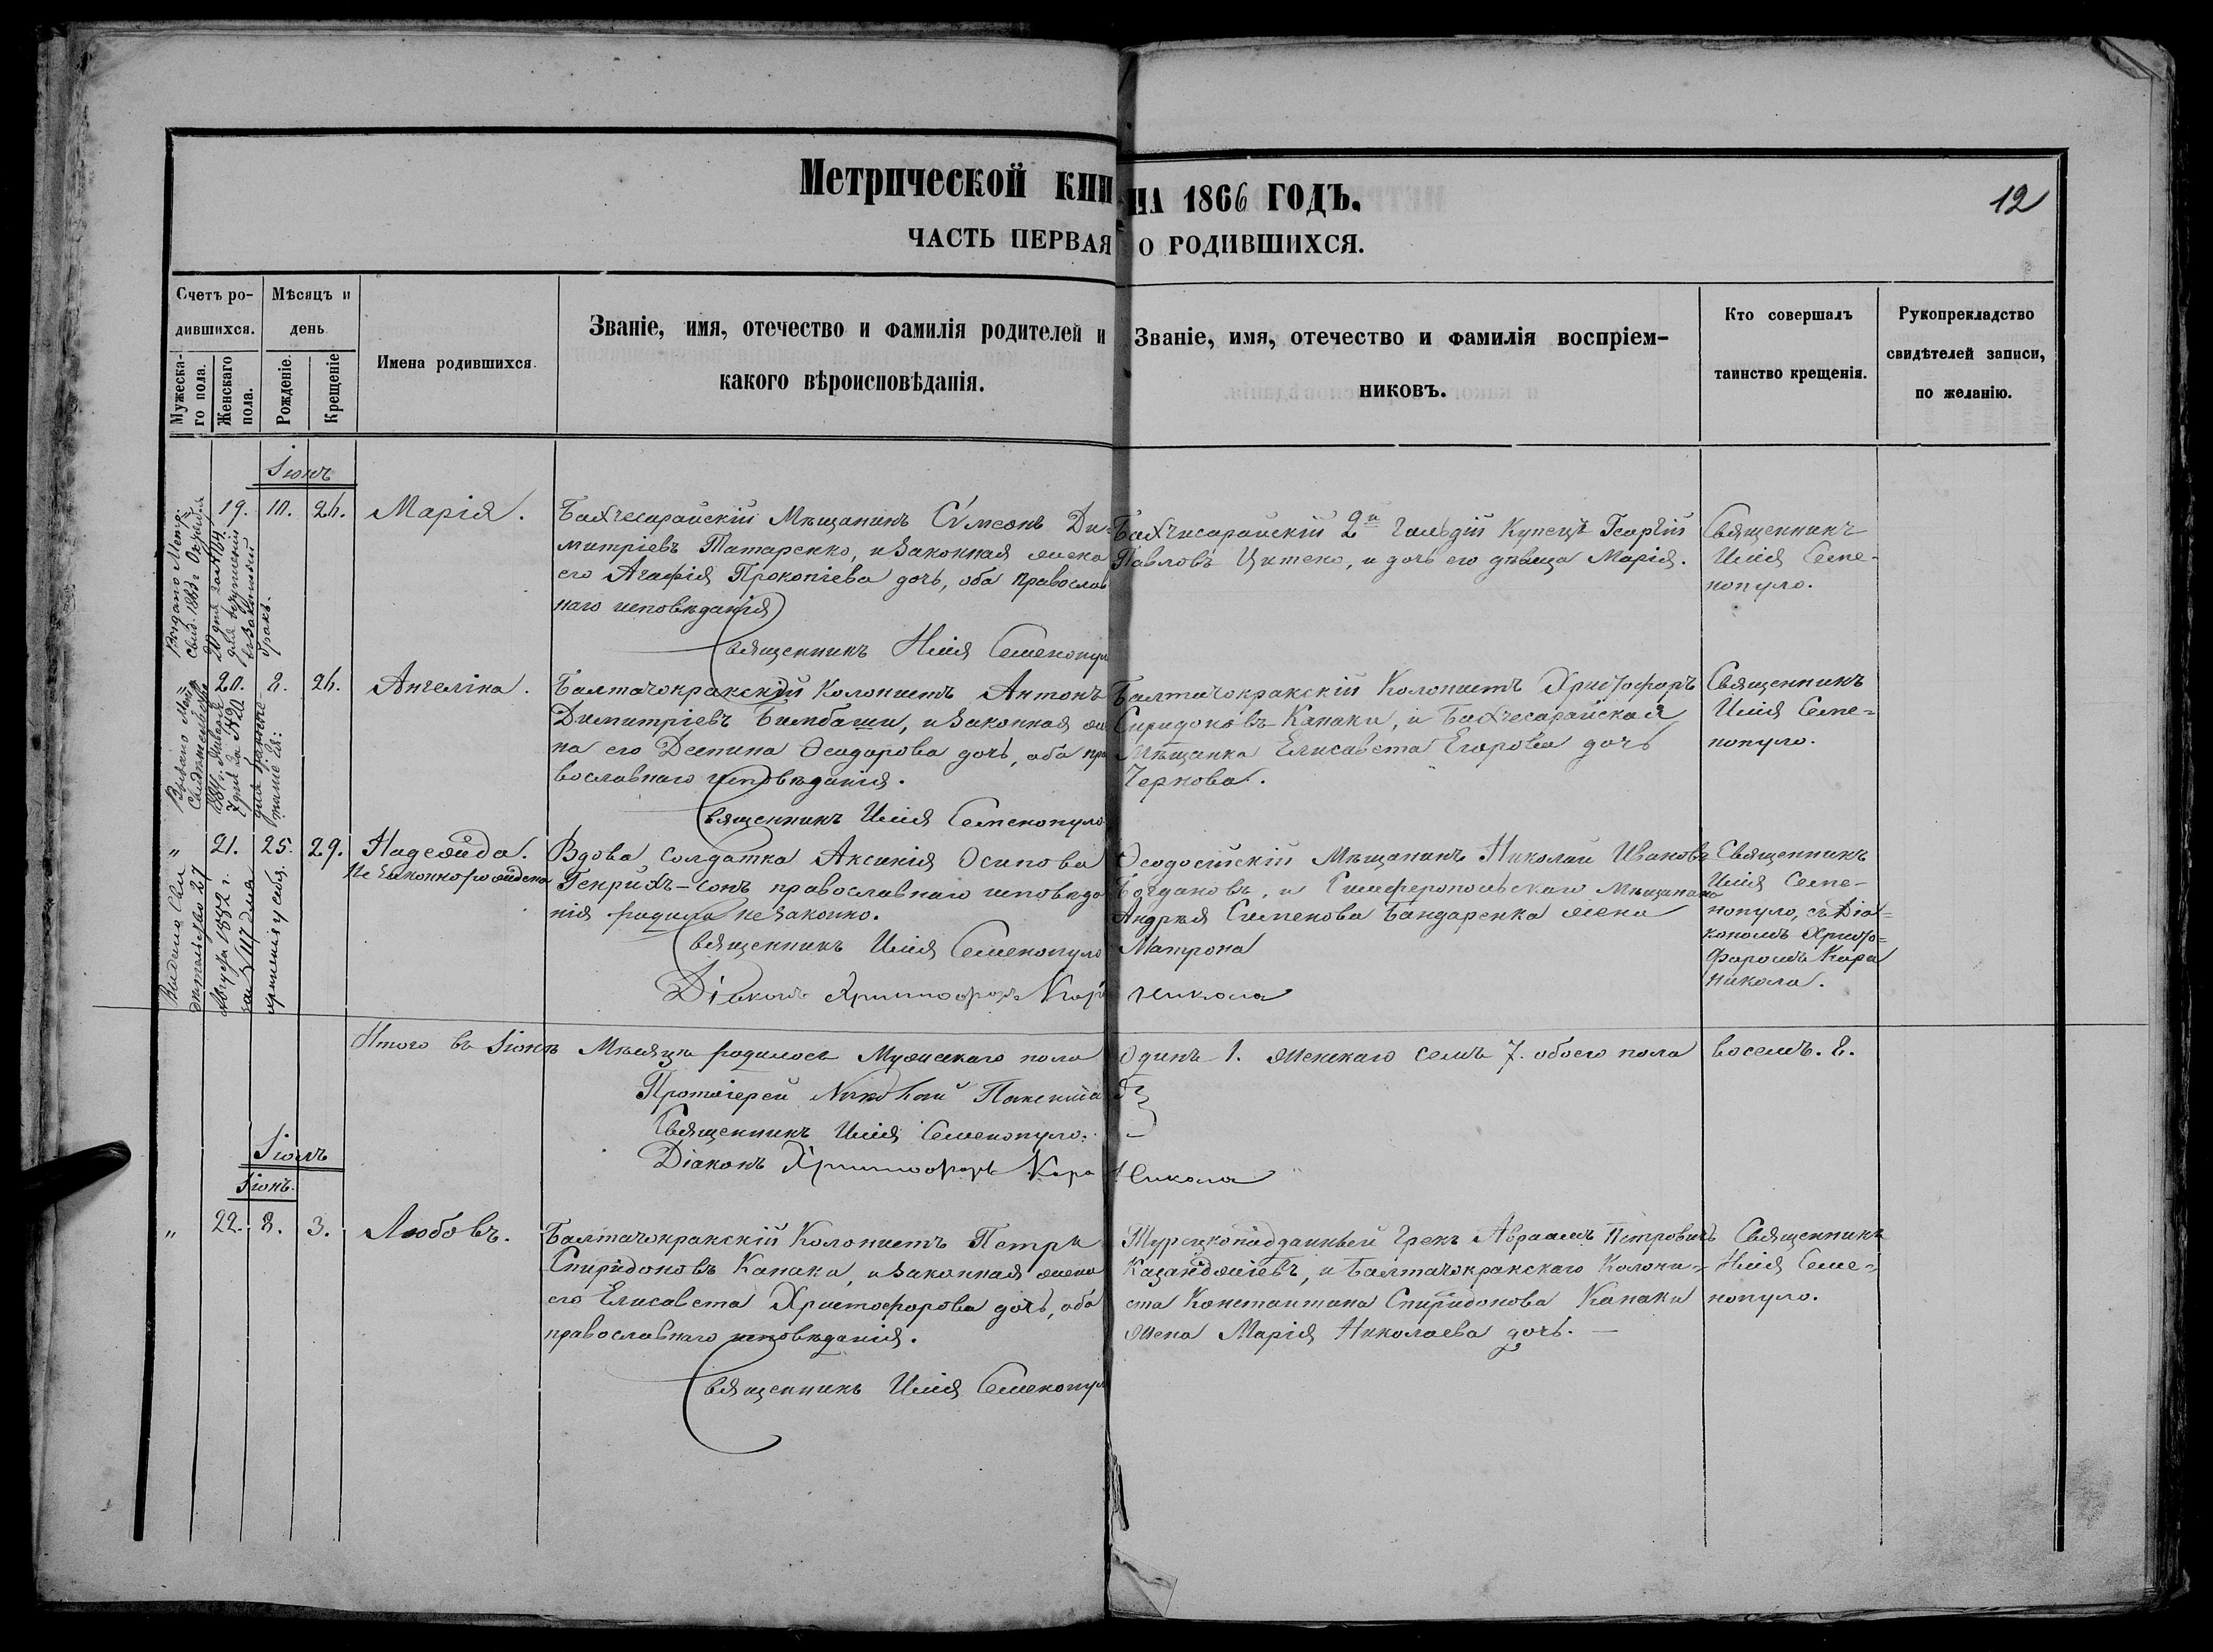 Метрической кни
на 1866 годъ.
12
ЧАСТЬ ПЕРВАЯ
О РОДИВШИХСЯ.
Счетъ ро-
дившихся.
Мужеска-
го пола.
Женскаго
пола.
Мѣсяцъ и
день
Рожденіе.
Крещеніе
Имена родившихся.
Званіе, имя, отечество и фамилія родителей и
какого вѣроисповѣданія.
Званіе, имя, отечество и фамилія воспріем-
никовъ.
Кто совершалъ
таинство крещенія.
Рукоприкладство
свидѣтелей записи,
по желанію.
Іюнь
Выдано Метр:
свид. 1883 г Октября
20 дня за №
для вступленія
въ законный
бракъ.
19.
10.
26.
Марія.
Бахчесарайскій Мѣщанинъ Сѵмеонъ Ди-
митріевъ Татаренко, и законная жена
его Агафія Прокопіева дочь, оба православ
наго исповѣданія
Священникъ Илія Семенопул
Бахчисарайскій 2й гильдій Купецъ Георгій
Павловъ Цитено, и дочь его дѣвица Марія.
Священникъ
Илія Семе-
нопуло.
Выдано
Свидѣтельство
1881 г. Января
7 дня за № 20
20.
8.
26.
Ангеліна.
Балтачокракскій Колонистъ Антонъ
Димитріевъ Бимбаши, и законная же
на его Деспина Ѳеодорова дочь, оба пра
вославнаго исповѣданія.
Священникъ Илія Семенопуло
Балтачокракскій Колонистъ Христофоръ
Спиридоновъ Канаки, и Бахчесарайская
Мѣщанка Елисавета Егорова дочь
Чернова.
Священникъ
Илія Семе-
нопуло.
Выдано Сви
дѣтельство 27
Августа 1882 г.
за № 117 для
храненія у себя.
"
21.
25.
29.
Надежда.
Незаконнорождена
Вдова солдатка Аксинія Осипова
Генрихъ-сонъ православнаго исповѣда
нія родила незаконно.
Священникъ Илія Семенопуло
Діаконъ Христофоръ Кара
Никола
Ѳеодосійскій Мѣщанинъ Николай Ивановъ
Богдановъ, и Симферопольскаго Мѣщанина
Андрея Семенова Бандаренка жена
Матрона
Священникъ
Илія Семе-
нопуло, съ Діа-
кономъ Христо-
форомъ Кара
Никола.
Итого въ Іюнѣ Мѣсяцѣ родилось Мужескаго пола
одинъ 1. женскаго семь 7. обоего пола
восемь. 8.
Протоіерей Николай
Священникъ Илія Семенопуло.
Діаконъ Христофоръ Кара
Никола
Іюль
Іюнь.
"
22.
8.
3.
Любовъ.
Балтачокракскій Колонистъ Петръ
Спиридоновъ Канаки, и законная жена
его Елисавета Христофорова дочь, оба
православнаго исповѣданія.
Священникъ Илія Семенопул
Турецкоподданный Грекъ Авраамъ Петровичъ
Казанджіевъ, и Балтачокракскаго Колони-
ста Константина Спиридонова Канаки
жена Марія Николаева дочь. —
Священникъ
Илія Семе-
нопуло.